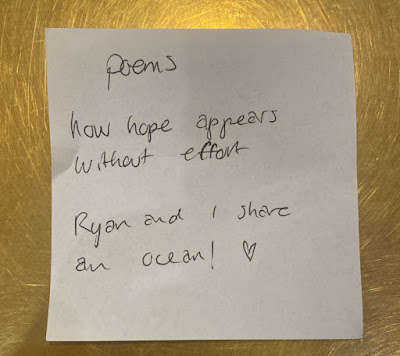 poems
how hope appears
without effort
Ryan and I share
an ocean! ♡